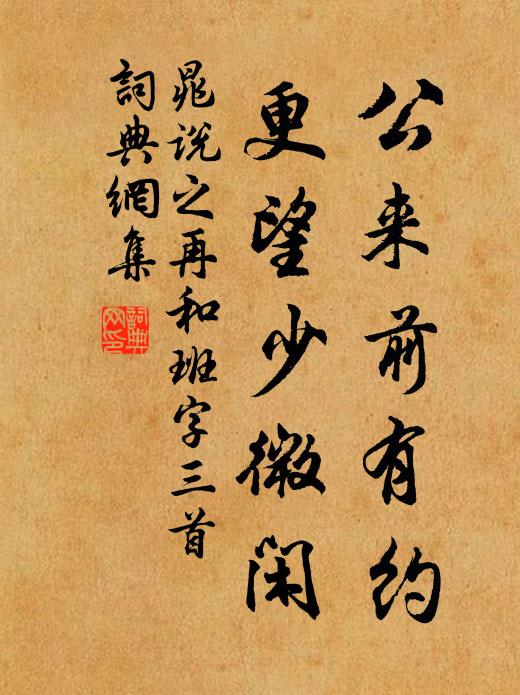 公来前有约
更望少微闲
晁说之再和班字三首
詞典網集
詞典網印